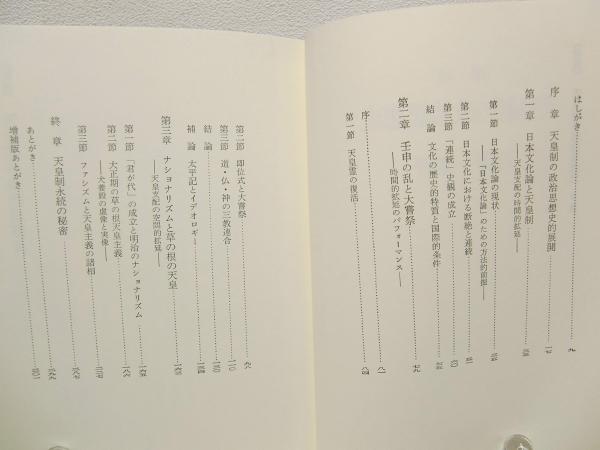 はしがき
序章 天皇制の政治思想史的展開
第一章 日本文化論と天皇制
――天皇支配の時間的拡延――
第一節 日本文化論の現状
――「日本文化論」のための方法的前提――
第二節 日本文化における断絶と連続
第三節 「連続」史観の成立
結論 文化の歴史的特質と国際的条件
第二章 壬申の乱と大嘗祭
――時間的拡延のパフォーマンス――
序
第一節 天皇霊の復活
第二節 即位式と大嘗祭
第三節 道・仏・神の三教連合
結論
補論 太平記とイデオロギー
第三章 ナショナリズムと草の根の天皇
――天皇支配の空間的拡延――
第一節 「君が代」の成立と明治のナショナリズム
第二節 大正期の草の根天皇主義
――大善殿の虚像と実像――
第三節 ファシズムと天皇主義の諸相
終章 天皇制永続の秘密
あとがき
増補版あとがき